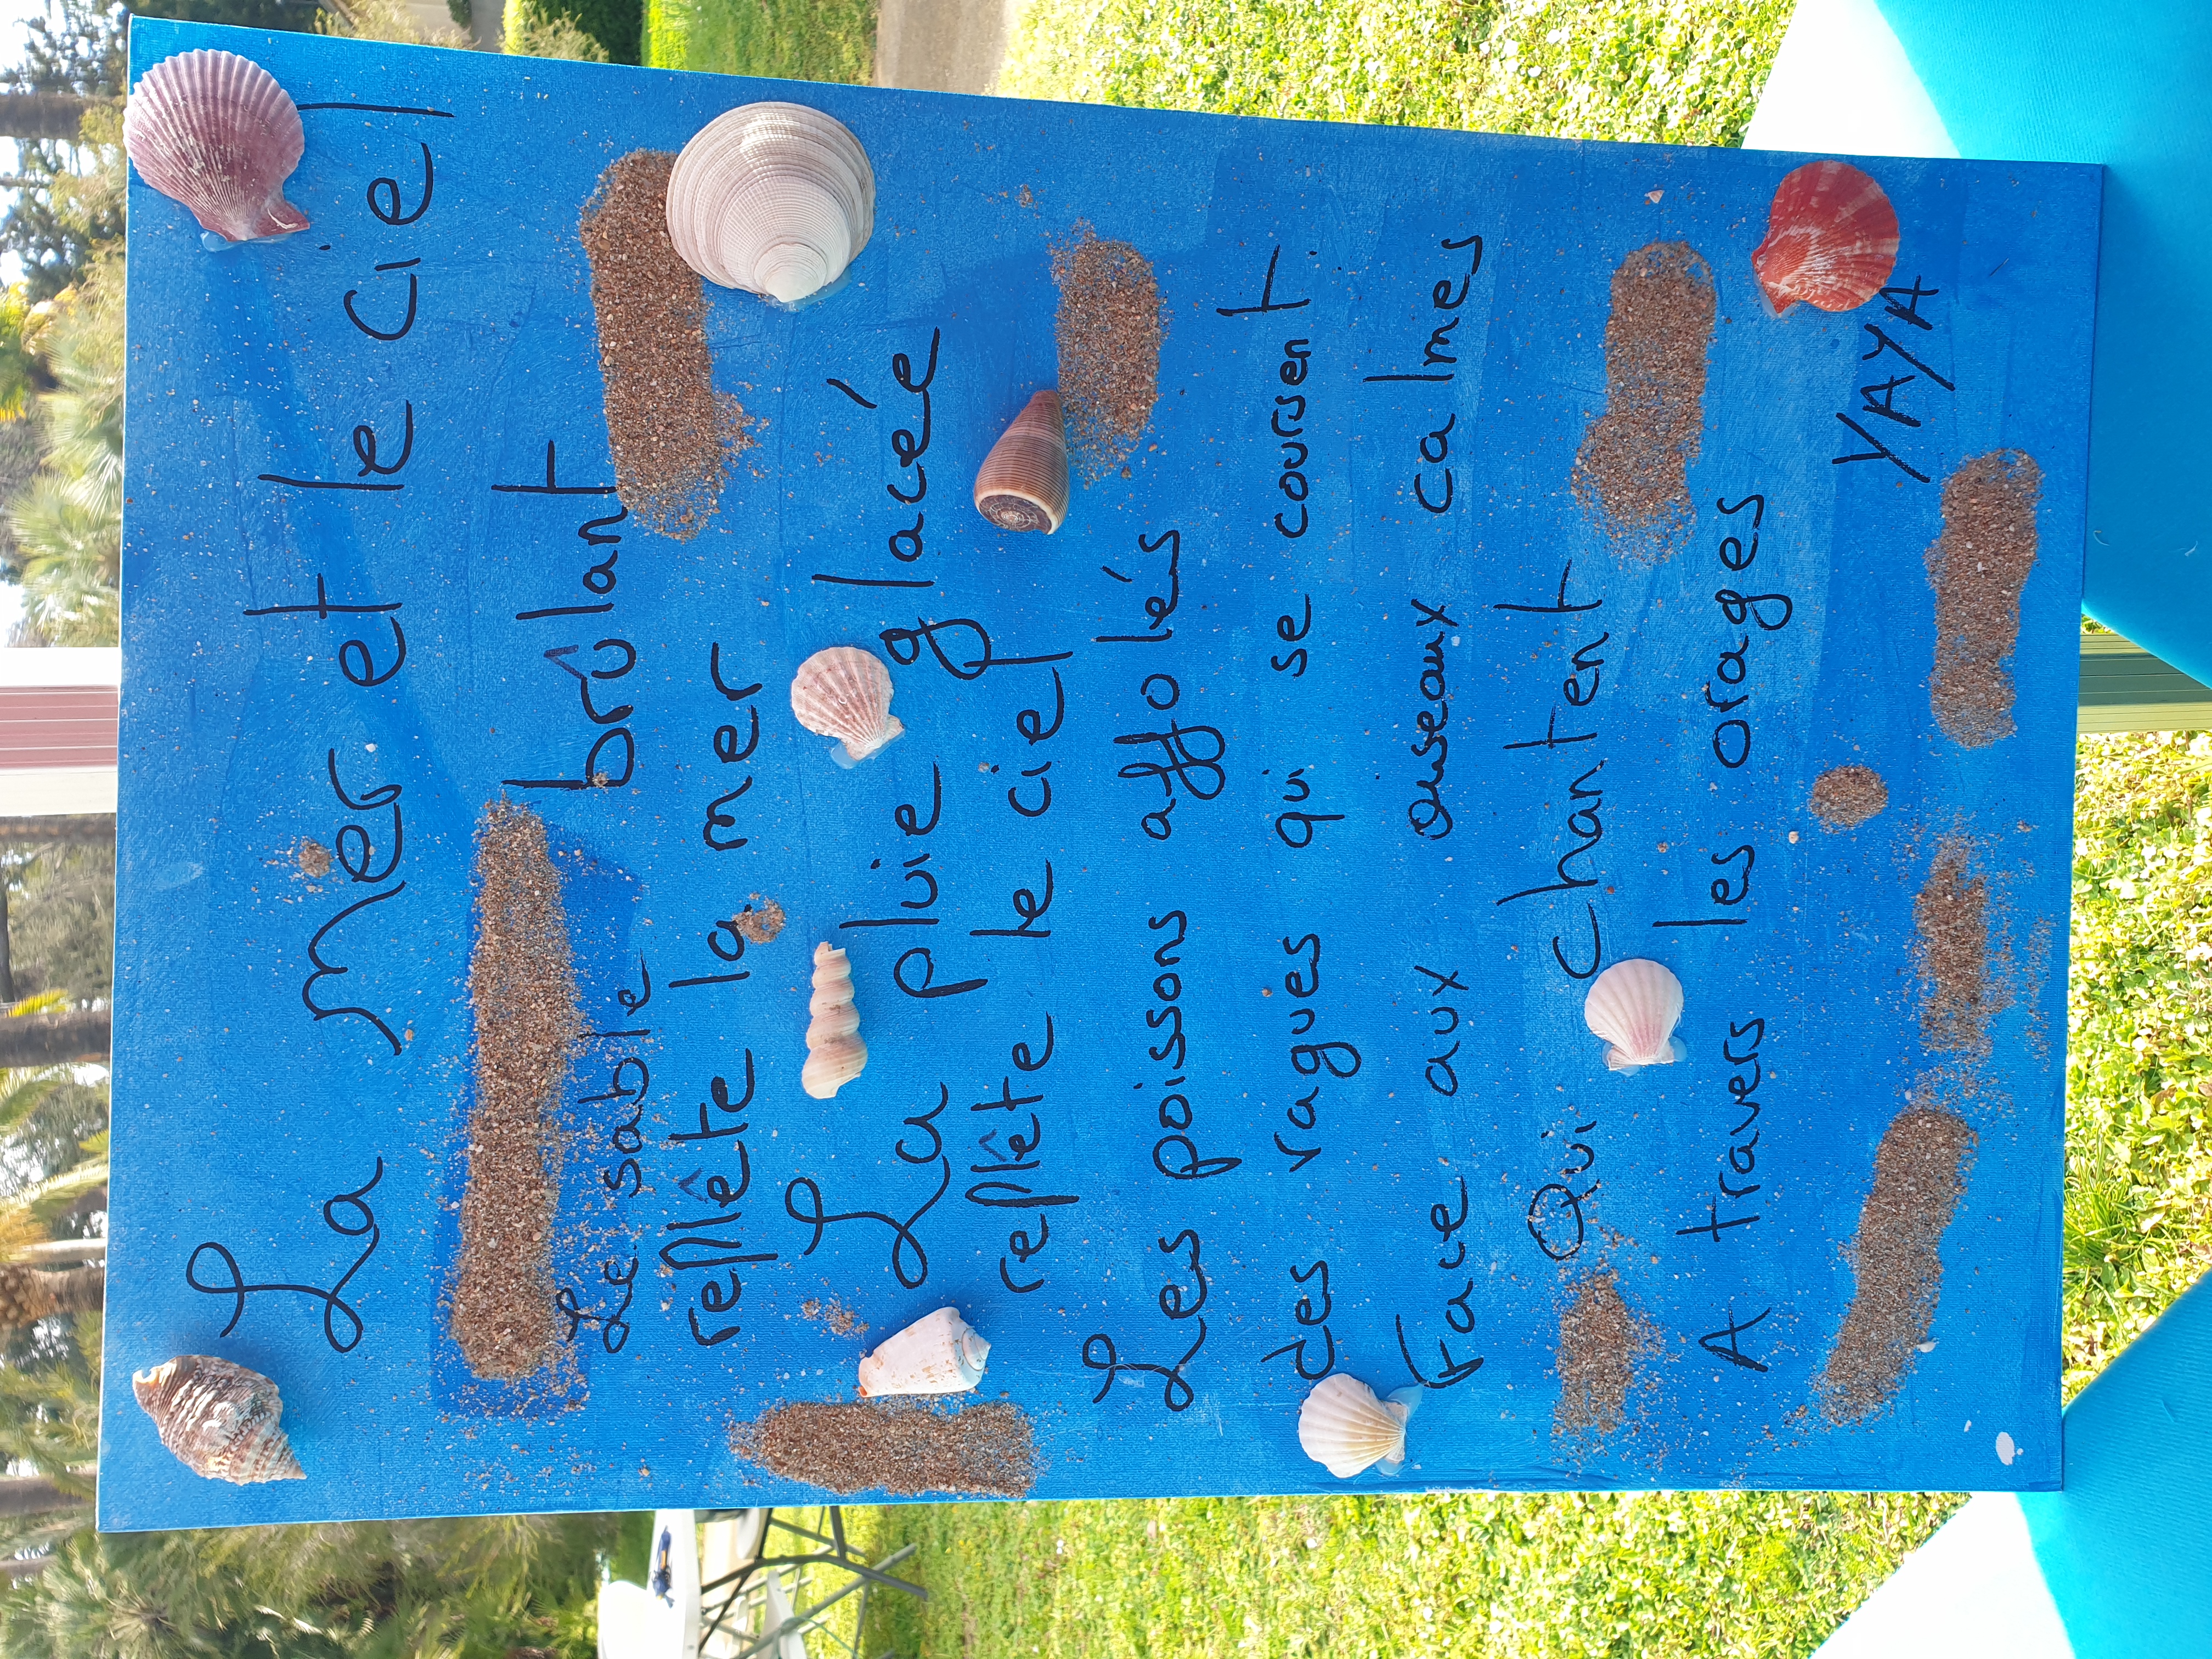 La mer et le ciel
Le sable brûlant
reflête la mer
La pluie glacée
reflête le ciel
Les poissons affolés
des vagues qui se coursent.
Face aux oiseaux calmes
Qui chantent
A travers les orages
YAYA